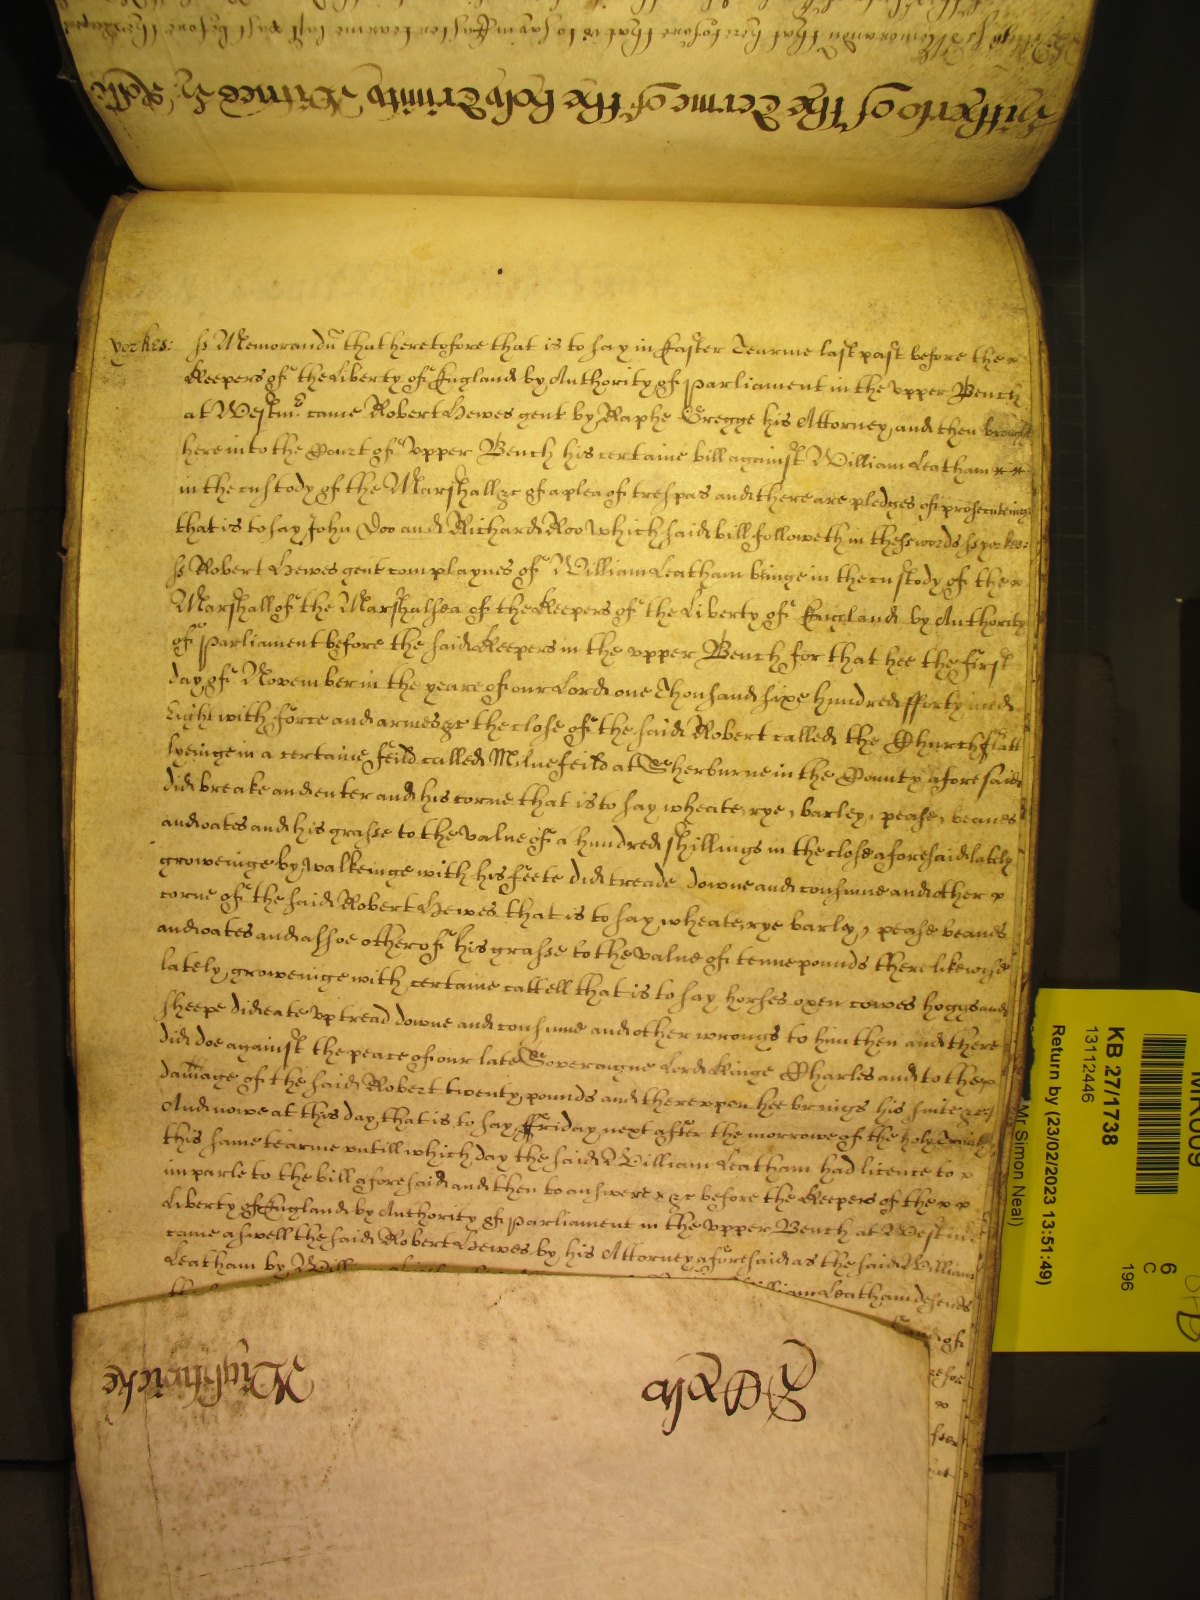 hitherto of the Terme of the holy Trinity Witnes H: Rolle
yorkes: ss Memorandū that heretofore that is to say in Easter Tearme last past before the x
Keepers of the Liberty of England by Authority of parliament in the vpper Bench
at Westmr came Robert Hewes gent by Raphe Gregge his Attorney and then brought
here into the Court of vpper Bench his certaine bill against William Leatham x x
in the custody of the Marshall &c of a plea of trespas and there are pledges of prosecuteinge
that is to say John Doo and Richard Roo which said bill followeth in these words ss yorkes:
ss Robert Hewes gent complaynes of William Leatham beinge in the custody of the x
Marshall of the Marshalsea of the Keepers of the Liberty of England by Authority
of parliament before the said Keepers in the vpper Bench for that hee the first
day of November in the yeare of our Lord one Thousand sixe hundred fforty and
Eight with force and armes &c the close of the said Robert called the Churchflatt
lyeinge in a certaine feild called Milnefeild at Sherburne in the County aforesaid
did breake and enter and his corne that is to say wheate, rye, barley, pease, beanes
and oates and his grasse to the value of a hundred shillings in the close aforesaid lately
groweinge by walkeinge with his feete did treade downe and consume and other x
corne of the said Robert Hewes that is to say wheate, rye barley, pease beanes
and oates and alsoe other of his grasse to the value of tenne pounds there likewise
lately groweinge with certaine cattell that is to say horses oxen cowes hoggs and
sheepe did eate vp tread downe and consume and other wrongs to him then and there
did doe against the peace of our late Soveraigne Lord Kinge Charles and to the x
damage of the said Robert twenty pounds and therevpon hee brings his suite &c
And nowe at this day that is to say ffriday next after the morrowe of the holy Trinity
this same tearme vntill which day the said William Leatham had licence to x
imparle to the bill aforesaid and then to answere x &c before the Keepers of the x x
Liberty of England by Authority of parliament in the vpper Bench at Westmr
came aswell the said Robert Hewes by his Attorney aforesaid as the said William
Leatham by
William Leatham defends
Wightwicke
KB 27/1738
13112446
Return by (23/02/2023 13:51:49)
Mr Simon Neal)
6
C
196